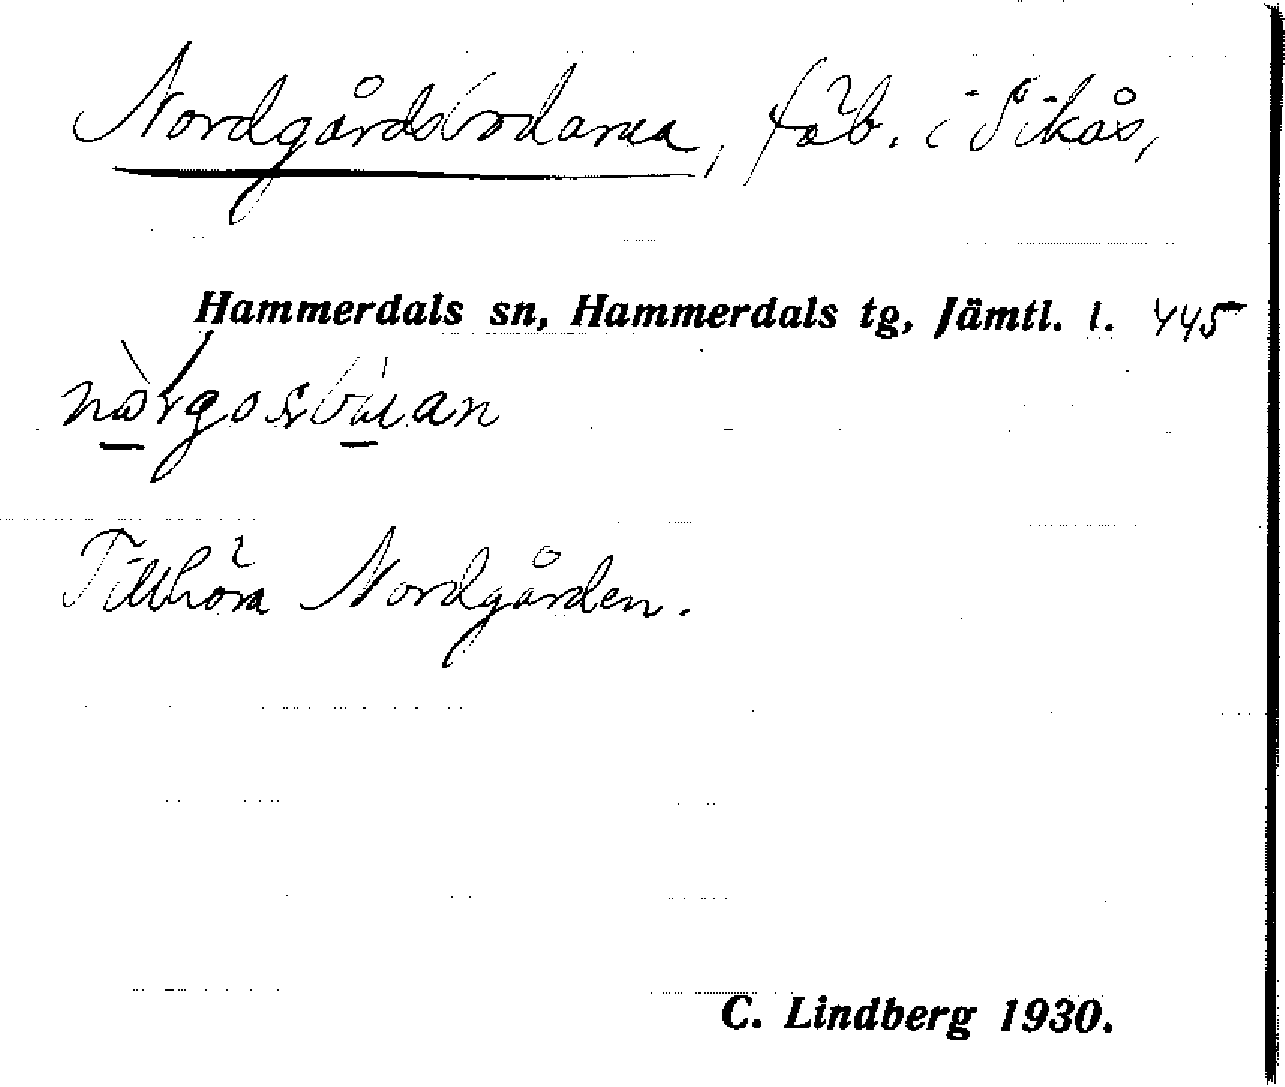 Nordgårdsbodarna, fäb. i Sikås,
Hammerdals sn, Hammerdals tg, Jämtl. l. 445
Tillhöra Nordgården.
C. Lindberg 1930.